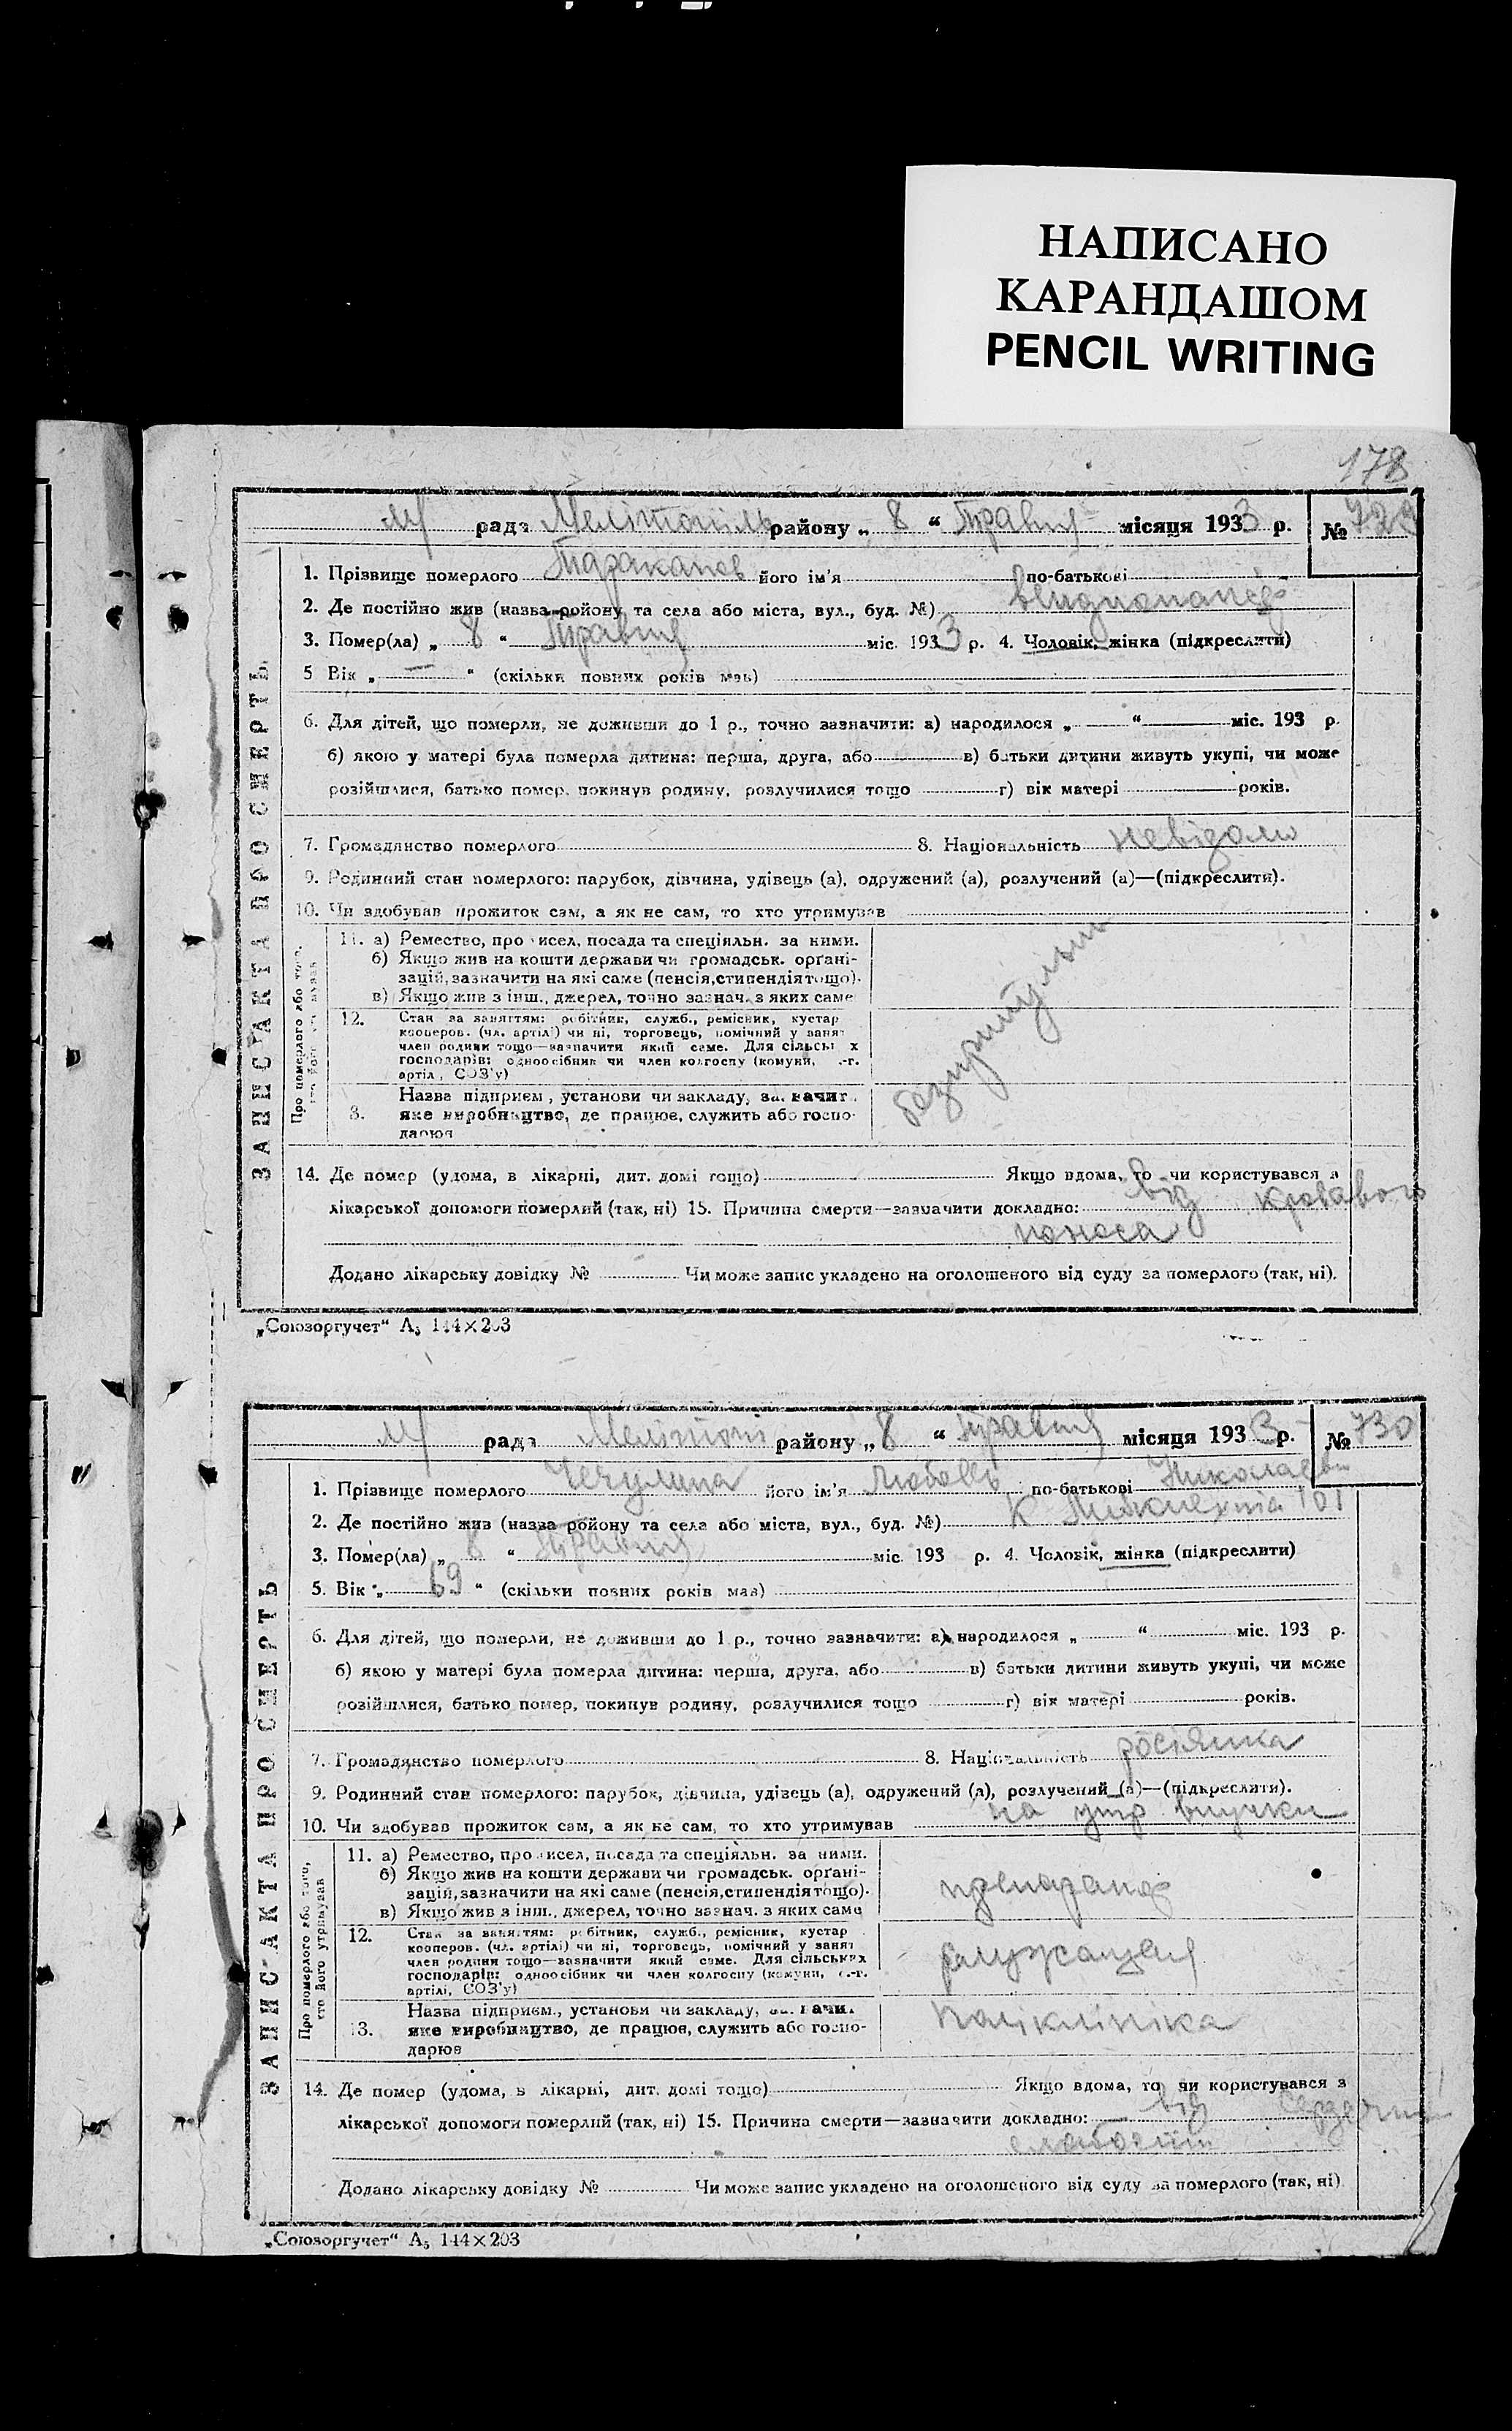 НАПИСАНО
КАРАНДАШОМ
PENCIL WRITING
178
м/ рада Мелітополь району „ 8 “ Травня місяця 1933 р. № 729
1. Прізвище померлого Тараканов його ім’я по-батькові
2. Де постійно жив (назва району та села або міста, вул., буд. №)
3. Помер(ла) „ 8 “ Травня міс. 1933 р. 4. Чоловік, жінка (підкреслити)
5 Вік „ — “ (скільки повних років мав)
6. Для дітей, що померли, не доживши до 1 р., точно зазначити: а) народилося „ “ міс. 193 р.
б) якою у матері була померла дитина: перша, друга, або в) батьки дитини живуть укупі, чи може
розійшлися, батько помер, покинув родину, розлучилися тощо г) вік матері років.
7. Громадянство померлого 8. Національність невідомо
9. Родинний стан померлого: парубок, дівчина, удівець (а), одружений (а), розлучений (а)—(підкреслити).
10. Чи здобував прожиток сам, а як не сам, то хто утримував
ЗАПИС АКТА ПРО СМЕРТЬ
11. а) Ремество, промисел, посада та спеціяльн. за ними.
б) Якщо жив на кошти держави чи громадськ. орґані-
зацій, зазначити на які саме (пенсія, стипендія тощо).
в) Якщо жив з інш., джерел, точно зазнач. з яких саме
12. Стан за заняттям: робітник, служб., ремісник, кустар
кооперов. (чл. артілі) чи ні, торговець, помічний у занят
член родини тощо—зазначити який саме. Для сільських
господарів: одноосібник чи член колгоспу (комуни, с.-г.
артіл, СОЗ’у)
Назва підприєм, установи чи закладу, зазначит
3. яке виробництво, де працює, служить або госпо-
дарює
14. Де помер (удома, в лікарні, дит. домі тощо) Якщо вдома, то чи користувався з
лікарської допомоги померлий (так, ні) 15. Причина смерти—зазначити докладно: від кровавого
поноса
Додано лікарську довідку № Чи може запис укладено на оголошеного від суду за померлого (так, ні).
„Союзоргучет“ А₅ 144×203
м/ рада Мелітопі району „ 8 “ травня місяця 1933 р. № 730
1. Прізвище померлого Чечулина його ім’я Любовь по-батькові Николаевн
2. Де постійно жив (назва району та села або міста, вул., буд. №) К 101
3. Помер(ла) „ 8 “ Травня міс. 193 р. 4. Чоловік, жінка (підкреслити)
5. Вік „ 69 “ (скільки повних років мав)
6. Для дітей, що померли, не доживши до 1 р., точно зазначити: а) народилося „ “ міс. 193 р.
б) якою у матері була померла дитина: перша, друга, або в) батьки дитини живуть укупі, чи може
розійшлися, батько помер, покинув родину, розлучилися тощо г) вік матері років.
7. Громадянство померлого 8. Національність росіянка
9. Родинний стан померлого: парубок, дівчина, удівець (а), одружений (а), розлучений (а)—(підкреслити).
10. Чи здобував прожиток сам, а як не сам, то хто утримував на утр внучки
ЗАПИС АКТА ПРО СМЕРТЬ
Про померлого або того,
хто його утримував
11. а) Ремество, промисел, посада та спеціяльн. за ними.
б) Якщо жив на кошти держави чи громадськ. орґані-
зацій, зазначити на які саме (пенсія, стипендія тощо).
в) Якщо жив з інш., джерел, точно зазнач. з яких саме
12. Стан за заняттям: робітник, служб., ремісник, кустар
кооперов. (чл. артілі) чи ні, торговець, помічний у занят
член родини тощо—зазначити який саме. Для сільських
господарів: одноосібник чи член колгоспу (комуни, с.-г.
артілі, СОЗ’у)
служащая
Назва підприєм., установи чи закладу, зазначи.
13. яке виробництво, де працює, служить або госпо-
дарює
поліклініка
14. Де помер (удома, в лікарні, дит. домі тощо) Якщо вдома, то чи користувався з
лікарської допомоги померлий (так, ні) 15. Причина смерти—зазначити докладно: від
Додано лікарську довідку № Чи може запис укладено на оголошеного від суду за померлого (так, ні)
„Союзоргучет“ А₅ 144×203